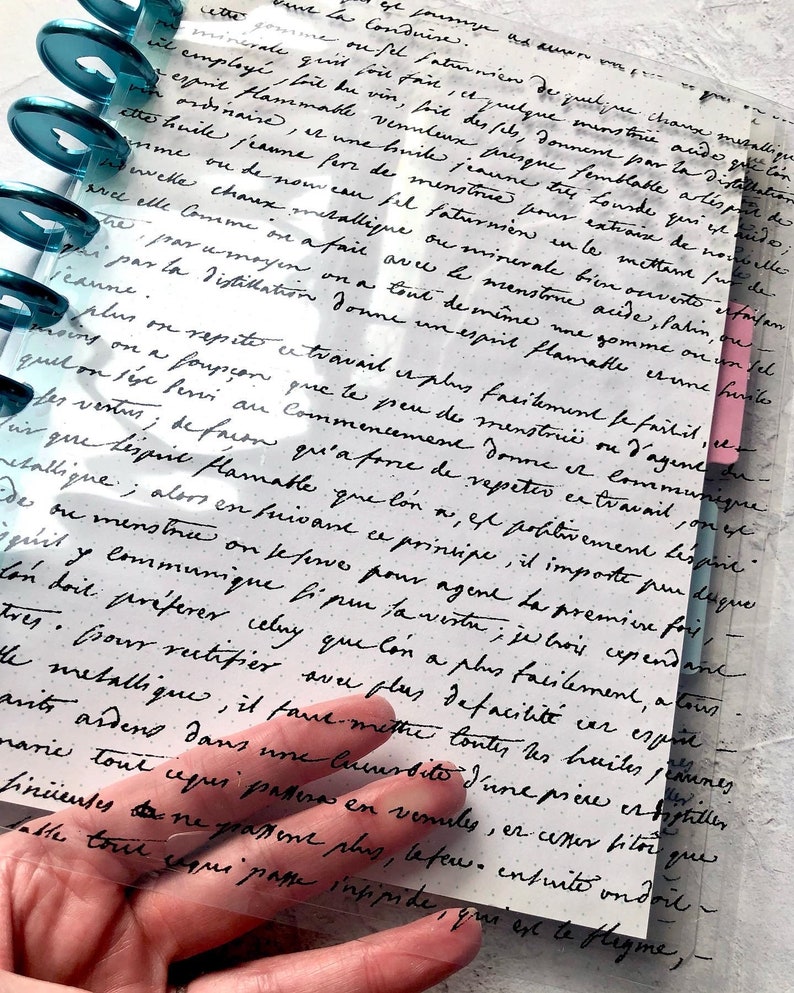 vent la Conduire.
cette gomme ou sel saturnien de quelque chaux metallique
ou minerale qu'il soit fait, et quelque menstrüe acide que l'on
ait employé, soit du vin, soit des sels, donnent par la distillation
esprit flammable venneleux presque semblable a l'esprit de
vin ordinaire, et une huile jaune très Lourde qui est acide;
cette huile jaune sert de menstrüe pour extraire de nouvelle
gomme ou de nouveau sel saturnien en le mettant sur de
nouvelle chaux metallique ou minerale bien ouverte et faisan
avec elle Comme on a fait avec le menstrue acide, salin, ou
par ce moyen on a tout de même une gomme ou un sel
qui par la distillation donne un esprit flammable et une huile
jaune.
plus on repete ce travail et plus facilement se fait il, et
moins on a soupçon que le peu de menstrüe ou d'agent du
quel on s'est servi au Commencement donne et Communique
ses vertus; de façon qu'a force de repeter ce travail, on est
sur que l'esprit flamable que l'on a, est positivement l'esprit
metallique; alors en suivant ce principe, il importe peu de que
acide ou menstrüe on se serve pour agent La premiere fois,
qu'il y communique si peu sa vertu; je crois cependant
l'on doit préferer celuy que l'on a plus facilement, a tous
pour rectifier avec plus de facilité cet esprit
metallique, il faut mettre toutes les huiles jaunes
ardens dans une Cucurbite d'une piece et distiller
marie tout ce qui passera en venules, et cesser sitot que
sinüeuses ne passent plus, le feu. ensuite on doit
tout ce qui passe insipide, qui est le flegme,